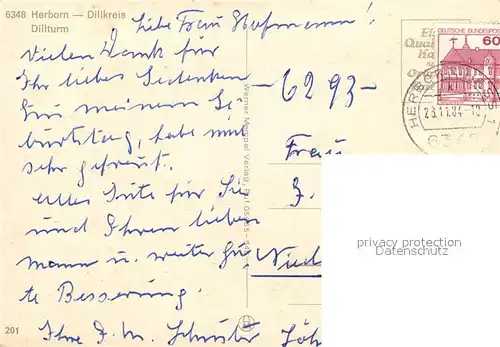 6348 Herborn — Dillkreis
Dillturm
Liebe Frau Hofmann!
Vielen Dank für
Ihr liebes Gedenken
zu meinem Ge-
burtstag, habe mich
sehr gefreut.
Alles Gute für Sie
und Ihren lieben
Mann u. weiter Gu-
te Besserung.
Ihre
201
Werner Verlag,
DEUTSCHE BUNDESPOST
60
HERBORN
23.11.84
-6293-
Frau
privacy protection
Datenschutz